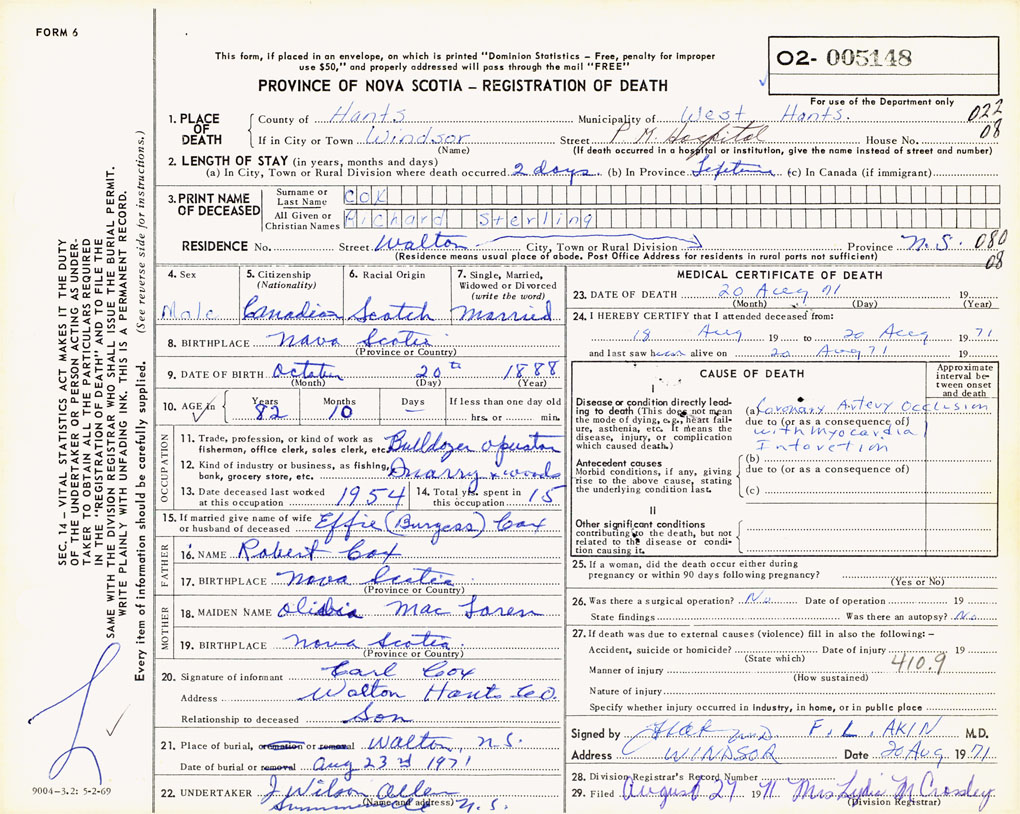 FORM 6
This form, if placed in an envelope, on which is printed "Dominion Statistics – Free, penalty for improper
use $50," and properly addressed will pass through the mail "FREE"
PROVINCE OF NOVA SCOTIA – REGISTRATION OF DEATH
02- 005148
For use of the Department only
022
08
1. PLACE OF DEATH
County of Hants Municipality of West Hants.
If in City or Town Windsor Street P. M. Hospital House No.
(Name) (If death occurred in a hospital or institution, give the name instead of street and number)
2. LENGTH OF STAY (in years, months and days)
(a) In City, Town or Rural Division where death occurred 2 days (b) In Province Lifetime (c) In Canada (if immigrant)
3. PRINT NAME OF DECEASED
Surname or Last Name Cox
All Given or Christian Names Richard Sterling
RESIDENCE No. Street Walton City, Town or Rural Division Province N.S. 080
(Residence means usual place of abode. Post Office Address for residents in rural parts not sufficient) 08
4. Sex
Male
5. Citizenship
(Nationality)
Canadian
6. Racial Origin
Scotch
7. Single, Married,
Widowed or Divorced
(write the word)
Married
8. BIRTHPLACE Nova Scotia
(Province or Country)
9. DATE OF BIRTH October 20th 1888
(Month) (Day) (Year)
10. AGE in
Years Months Days If less than one day old
82 10 — hrs. or min.
OCCUPATION
11. Trade, profession, or kind of work as
fisherman, office clerk, sales clerk, etc. Bulldozer operator
12. Kind of industry or business, as fishing,
bank, grocery store, etc. Quarry & woods
13. Date deceased last worked
at this occupation 1954
14. Total yrs. spent in
this occupation 15
15. If married give name of wife
or husband of deceased Effie (Burgess) Cox
FATHER
16. NAME Robert Cox
17. BIRTHPLACE Nova Scotia
(Province or Country)
MOTHER
18. MAIDEN NAME Mac Laren
19. BIRTHPLACE Nova Scotia
(Province or Country)
20. Signature of informant Earl Cox
Address Walton Hants Co.
Relationship to deceased Son
21. Place of burial, cremation or removal Walton, N.S.
Date of burial or removal Aug 23rd 1971
22. UNDERTAKER J Wilson Allen
(Name and address)
Summerville N.S.
MEDICAL CERTIFICATE OF DEATH
23. DATE OF DEATH 20 Aug 71 19
(Month) (Day) (Year)
24. I HEREBY CERTIFY that I attended deceased from:
18 Aug 19 to 20 Aug 19 71
and last saw h alive on 20 Aug 71 19
CAUSE OF DEATH
Approximate
interval be-
tween onset
and death
I
Disease or condition directly lead-
ing to death (This does not mean
the mode of dying, e.g., heart fail-
ure, asthenia, etc. It means the
disease, injury, or complication
which caused death.)
(a) Coronary Artery Occlusion
due to (or as a consequence of)
with myocardia
Infarction
Antecedent causes
Morbid conditions, if any, giving
rise to the above cause, stating
the underlying condition last.
(b)
due to (or as a consequence of)
(c)
II
Other significant conditions
contributing to the death, but not
related to the disease or condi-
tion causing it.
25. If a woman, did the death occur either during
pregnancy or within 90 days following pregnancy?
(Yes or No)
26. Was there a surgical operation? No Date of operation 19
State findings Was there an autopsy? No
27. If death was due to external causes (violence) fill in also the following: –
Accident, suicide or homicide? Date of injury 19
(State which)
410.9
Manner of injury
(How sustained)
Nature of injury
Specify whether injury occurred in industry, in home, or in public place
Signed by M.D. F. L. AKIN M.D.
Address WINDSOR Date 20 Aug 1971
28. Division Registrar's Record Number
29. Filed August 27 1971 Mrs Lydia M Crossley
(Division Registrar)
SEC. 14 – VITAL STATISTICS ACT MAKES IT THE DUTY
OF THE UNDERTAKER OR PERSON ACTING AS UNDER-
TAKER TO OBTAIN ALL THE PARTICULARS REQUIRED
IN THE "REGISTRATION OF DEATH" AND TO FILE THE
SAME WITH THE DIVISION REGISTRAR WHO SHALL ISSUE THE BURIAL PERMIT.
WRITE PLAINLY WITH UNFADING INK. THIS IS A PERMANENT RECORD.
Every item of information should be carefully supplied. (See reverse side for instructions.)
9004-3.2: 5-2-69